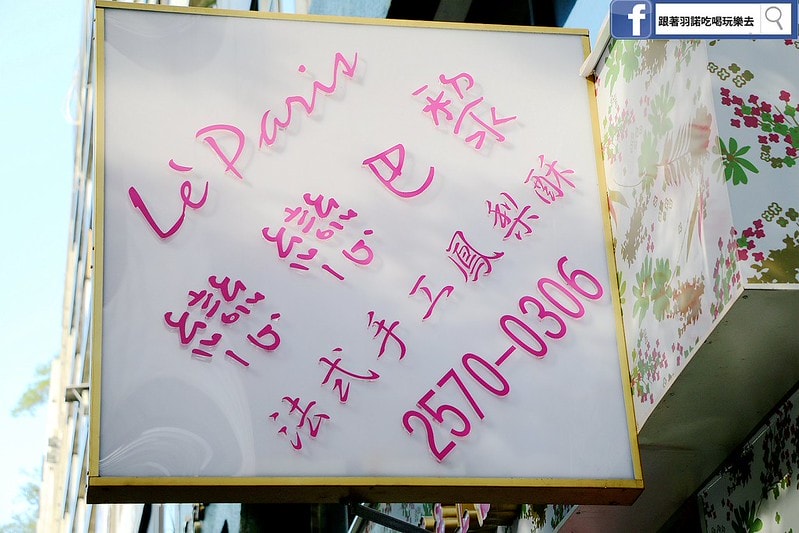 Lè Paris
戀戀巴黎
法式手工鳳梨酥
2570-0306
f 跟著羽諾吃喝玩樂去